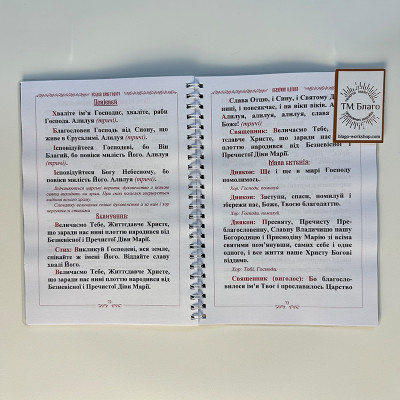 Полієлей
Хваліте ім'я Господнє, хваліте, раби
Господа. Алилуя (тричі).
Благословен Господь від Сиону, що
живе в Єрусалимі. Алилуя (тричі).
Ісповідуйтеся Господеві, бо Він
Благий, бо повіки милість Його. Алилуя
(тричі).
Ісповідуйтеся Богу Небесному, бо
повіки милість Його. Алилуя (тричі).
Величання:
Величаємо Тебе, Життєдавче Христе,
що заради нас нині плоттю народився від
Безневісної і Пречистої Діви Марії.
Стих: Викликуй Господеві, вся земле,
співайте ж імені Його. Віддайте славу
хвалі Його.
Величаємо Тебе, Життєдавче Христе,
що заради нас нині плоттю народився від
Безневісної і Пречистої Діви Марії.
Слава Отцю, і Сину, і Святому Д
нині, і повсякчас, і на віки віків. А
Алилуя, алилуя, алилуя, слава
Боже! (тричі)
Священник: Величаємо Тебе,
тєдавче Христе, що заради нас
плоттю народився від Безневісної і
Пречистої Діви Марії.
Мала єктенія:
Диякон: Ще і ще в мирі Господу
помолимось.
Хор: Господи, помилуй.
Диякон: Заступи, спаси, помилуй і
збережи нас, Боже, Твоєю благодаттю.
Хор: Господи, помилуй.
Диякон: Пресвяту, Пречисту Пре-
благословенну, Славну Владичицю нашу
Богородицю і Приснодіву Марію зі всіма
святими пом'янувши, самих себе і одне
одного, і все життя наше Христу Богові
віддамо.
Хор: Тобі, Господи.
Священник (виголос): Бо благосло-
вилося ім'я Твоє і прославилось Царство
ТМ Благо
blago-workshop.com